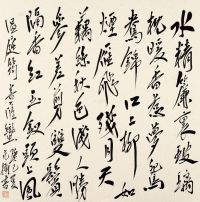 水精簾裏玻璃
枕暖香惹夢鴛
鴦錦江上柳如
煙雁飛殘月天
藕絲秋色淺人勝
參差剪雙鬢
隔香紅玉釵頭上風
温庭筠菩薩蠻